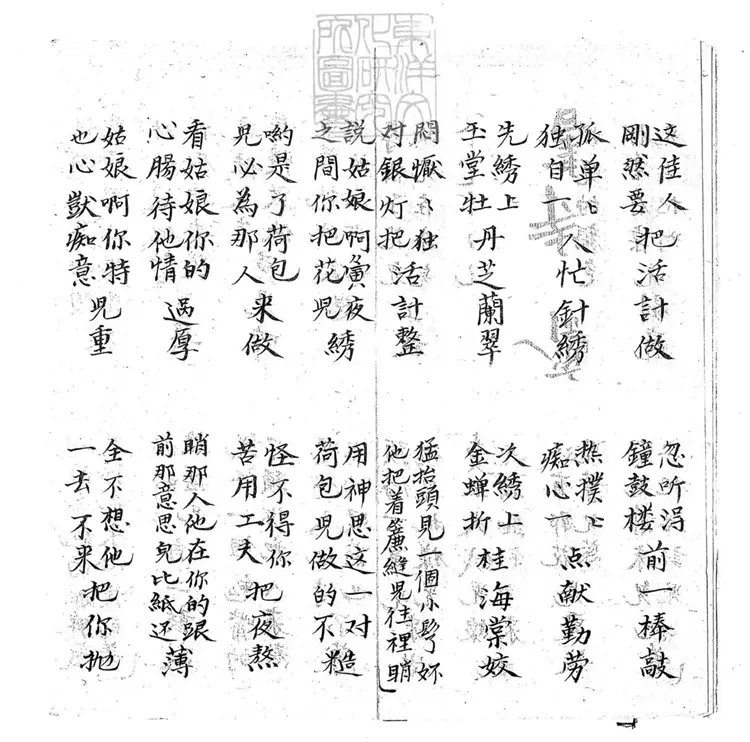 東洋文化研究所圖書
这佳人剛然要把活計做 忽听淂鐘鼓楼前一棒敲
孤单匕独自一人忙針綉 热撲匕痴心一点献勤劳
先綉上玉堂牡丹芝蘭翠 次綉上金蝉折桂海棠姣
悶懨匕独对銀灯把活計整 猛抬頭見一個小髩妳他把着簾縫児往裡睄
説姑娘啊夤夜之間你把花児綉 用神思这一对荷包児做的不糙
喲是了荷包児必為那人来做 怪不得你苦用工夫把夜熬
看姑娘你的心腸待他情过厚 睄那人他在你的跟前那意思皃比紙还薄
姑娘啊你特也心獃痴意児重 全不想他一去不来把你抛